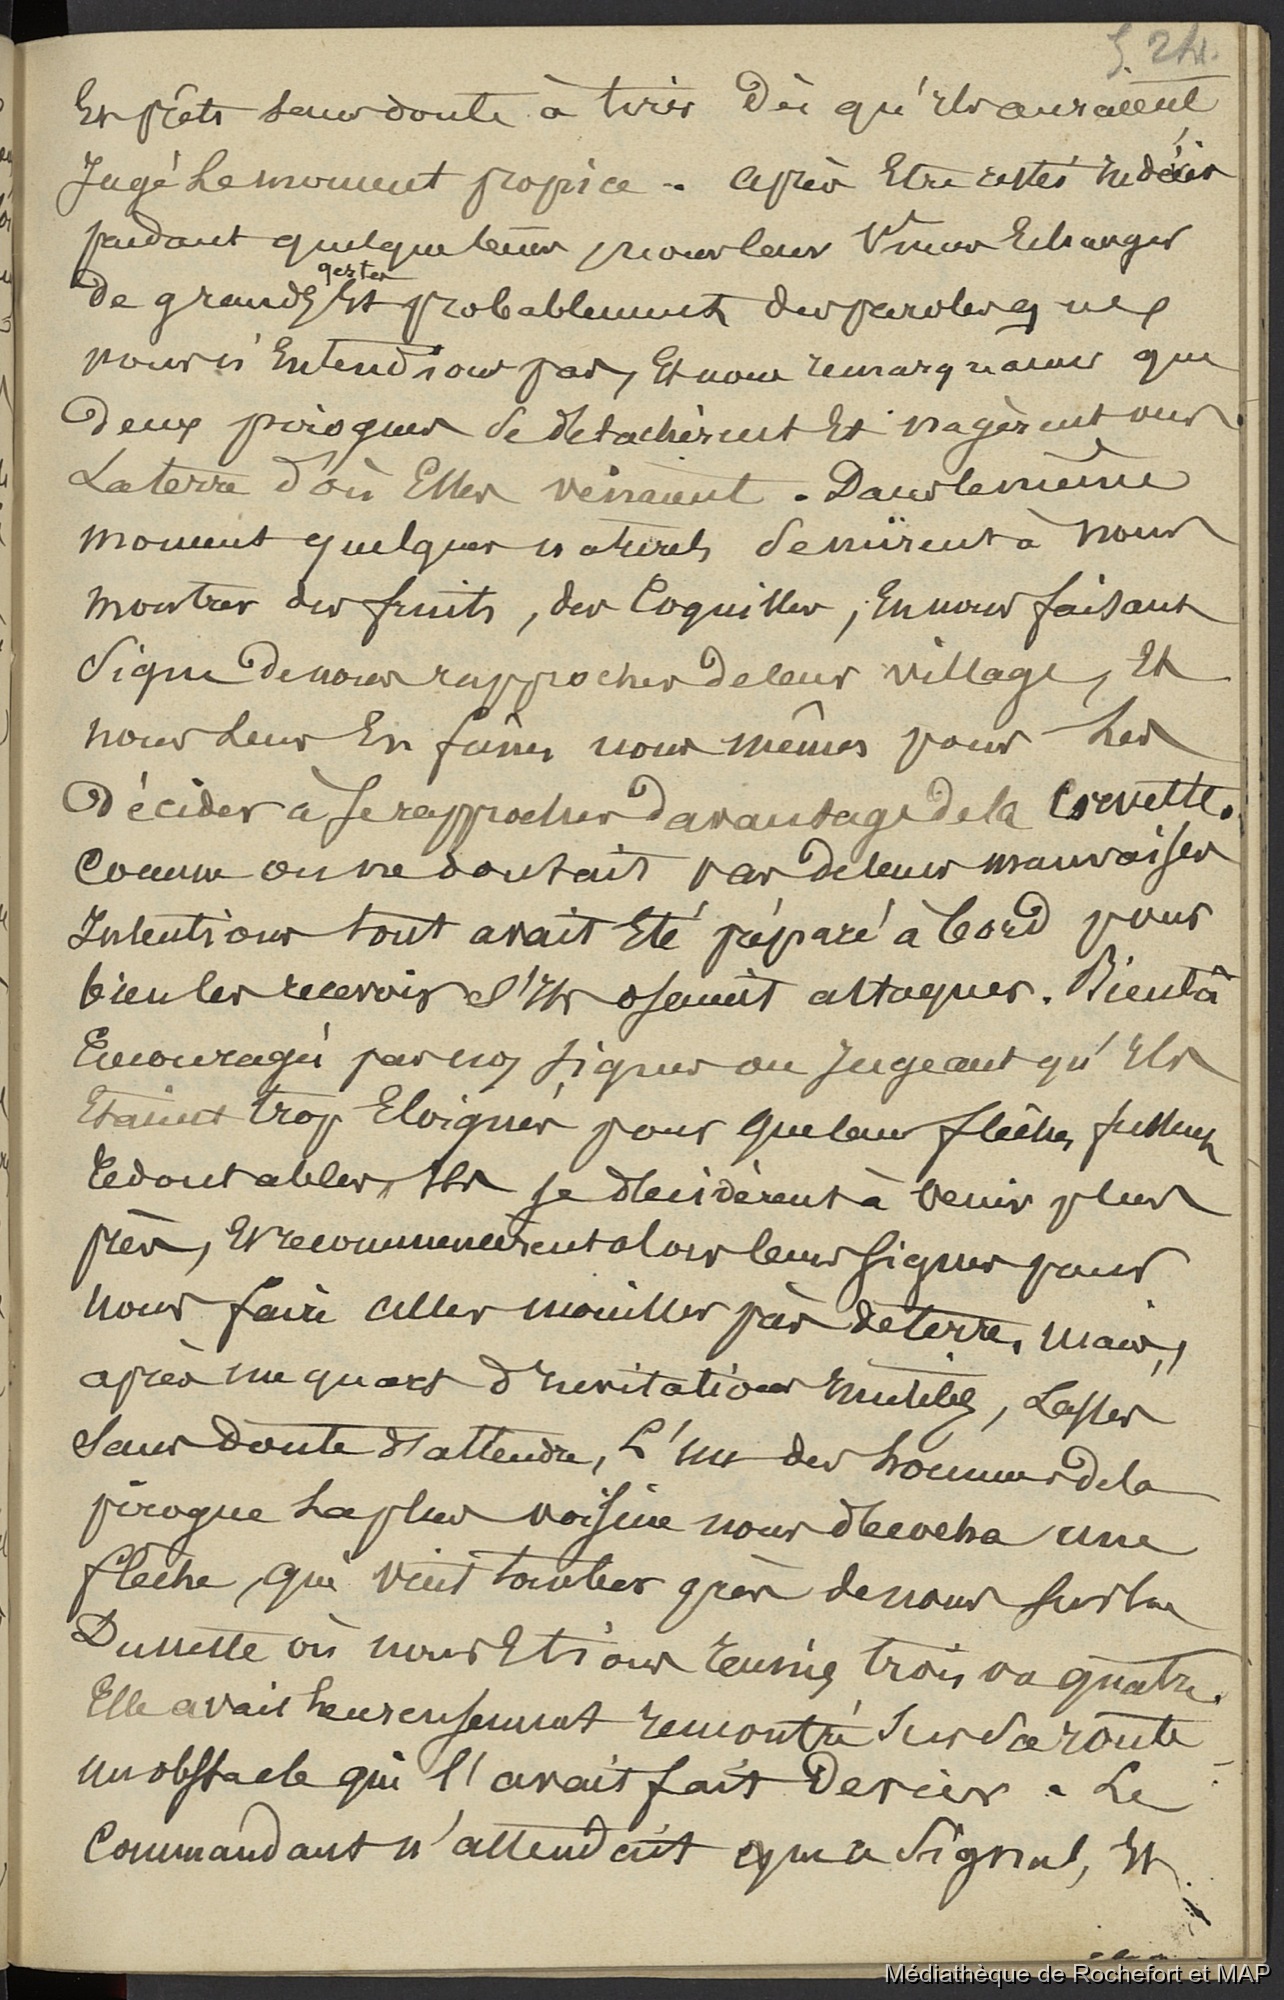 524.
Et prêts sans doute à tirer Dès qu'ils auraient
Jugé Le moment propice - après Etre restés Indécis
pendant quelque tems, nous leur Vimes Echanger
gestes
De grands Et probablement des paroles que
nous n'Entendions pas, Et nous remarquâmes que
Deux pirogues se détachèrent Et nagèrent vers
La terre d'où Elles venaient. Dans le même
moment quelques naturels Se mîrent à nous
montrer des fruits, des Coquilles, En nous faisant
Signe De nous rapprocher De leur village, Et
nous Leur En fîmes nous mêmes pour Les
Décider à Se rapprocher Davantage De la Corvette.
Comme on ne doutait pas De leurs mauvaises
Intentions tout avait Eté préparé à bord pour
bien les recevoir S'Ils osaient attaquer. Bientôt
Encouragés par nos signes ou Jugeant qu'Ils
Etaient trop Eloignés pour que leurs flêches fussent
redoutables, Ils se décidèrent à venir plus
près, Et recommencèrent alors leurs signes pour
nous faire aller mouiller près de terre, mais,
après un quart d'Invitations Inutiles, Lassés
Sans Doute d'attendre, L'un des hommes de la
pirogue La plus voisine nous décocha une
flêche, qui vint tomber près de nous sur la
Dunette où nous Etions réunis trois ou quatre.
Elle avait heureusement rencontré Sur Sa route
un obstacle qui l'avait fait Dévier - Le
Commandant n'attendait que ce Signal, Et
Médiathèque de Rochefort et MAP